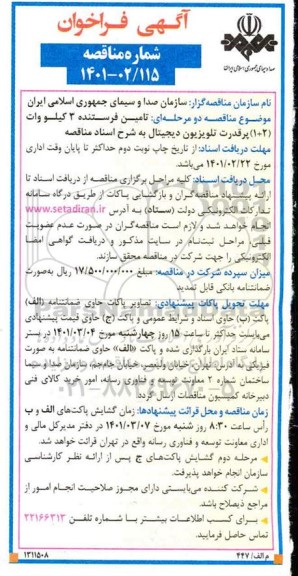 آگهی فراخوان
شماره مناقصه
۱۴۰۱-۰۲/۱۱۵
صدا و سیمای جمهوری اسلامی ایران
نام سازمان مناقصه‌گزار: سازمان صدا و سیمای جمهوری اسلامی ایران
موضوع مناقصه دو مرحله‌ای: تامین فرستنده ۲ کیلو وات
(۱+۲) پرقدرت تلویزیون دیجیتال به شرح اسناد مناقصه
مهلت دریافت اسناد: از تاریخ چاپ نوبت دوم حداکثر تا پایان وقت اداری
مورخ ۱۴۰۱/۰۲/۲۲ می‌باشد.
محل دریافت اسناد: کلیه مراحل برگزاری مناقصه از دریافت اسناد تا
ارائه پیشنهاد مناقصه‌گران و بازگشایی پاکات از طریق درگاه سامانه
تدارکات الکترونیکی دولت (ستاد) به آدرس www.setadiran.ir
انجام خواهد شد و لازم است مناقصه‌گران در صورت عدم عضویت
قبلی، مراحل ثبت‌نام در سایت مذکور و دریافت گواهی امضا
الکترونیکی را جهت شرکت در مناقصه محقق سازند.
میزان سپرده شرکت در مناقصه: مبلغ ۱۷/۵۰۰/۰۰۰/۰۰۰ ریال به‌صورت
ضمانتنامه بانکی قابل تمدید
مهلت تحویل پاکات پیشنهادی: تصاویر پاکات حاوی ضمانتنامه (الف)
پاکت (ب) حاوی اسناد و شرایط عمومی و پاکت (ج) حاوی قیمت پیشنهادی
می‌بایست حداکثر تا ساعت ۱۵ روز چهارشنبه مورخ ۱۴۰۱/۰۳/۰۴ در بستر
سامانه ستاد ایران بارگذاری شده و پاکت «الف» حاوی ضمانتنامه به صورت
فیزیکی به آدرس تهران، خیابان ولیعصر، خیابان جام‌جم، سازمان صدا و سیما
ساختمان شماره ۲ معاونت توسعه و فناوری رسانه، امور خرید کالای فنی
دبیرخانه کمیسیون مناقصات ارسال گردد.
زمان مناقصه و محل قرائت پیشنهادها: زمان گشایش پاکت‌های الف و ب
رأس ساعت ۸:۳۰ روز شنبه مورخ ۱۴۰۱/۰۳/۰۷ در دفتر مدیرکل مالی و
اداری معاونت توسعه و فناوری رسانه واقع در تهران قرائت خواهد شد.
مرحله دوم گشایش پاکت‌های ج پس از ارائه نظر کارشناسی
سازمان انجام خواهد پذیرفت.
شرکت کننده می‌بایستی دارای مجوز صلاحیت انجام امور از
مراجع ذیصلاح باشد.
برای کسب اطلاعات بیشتر با شماره تلفن ۲۲۱۶۶۳۱۳
تماس حاصل فرمایید.
م الف/ ۴۴۷
۱۳۱۱۵۰۸